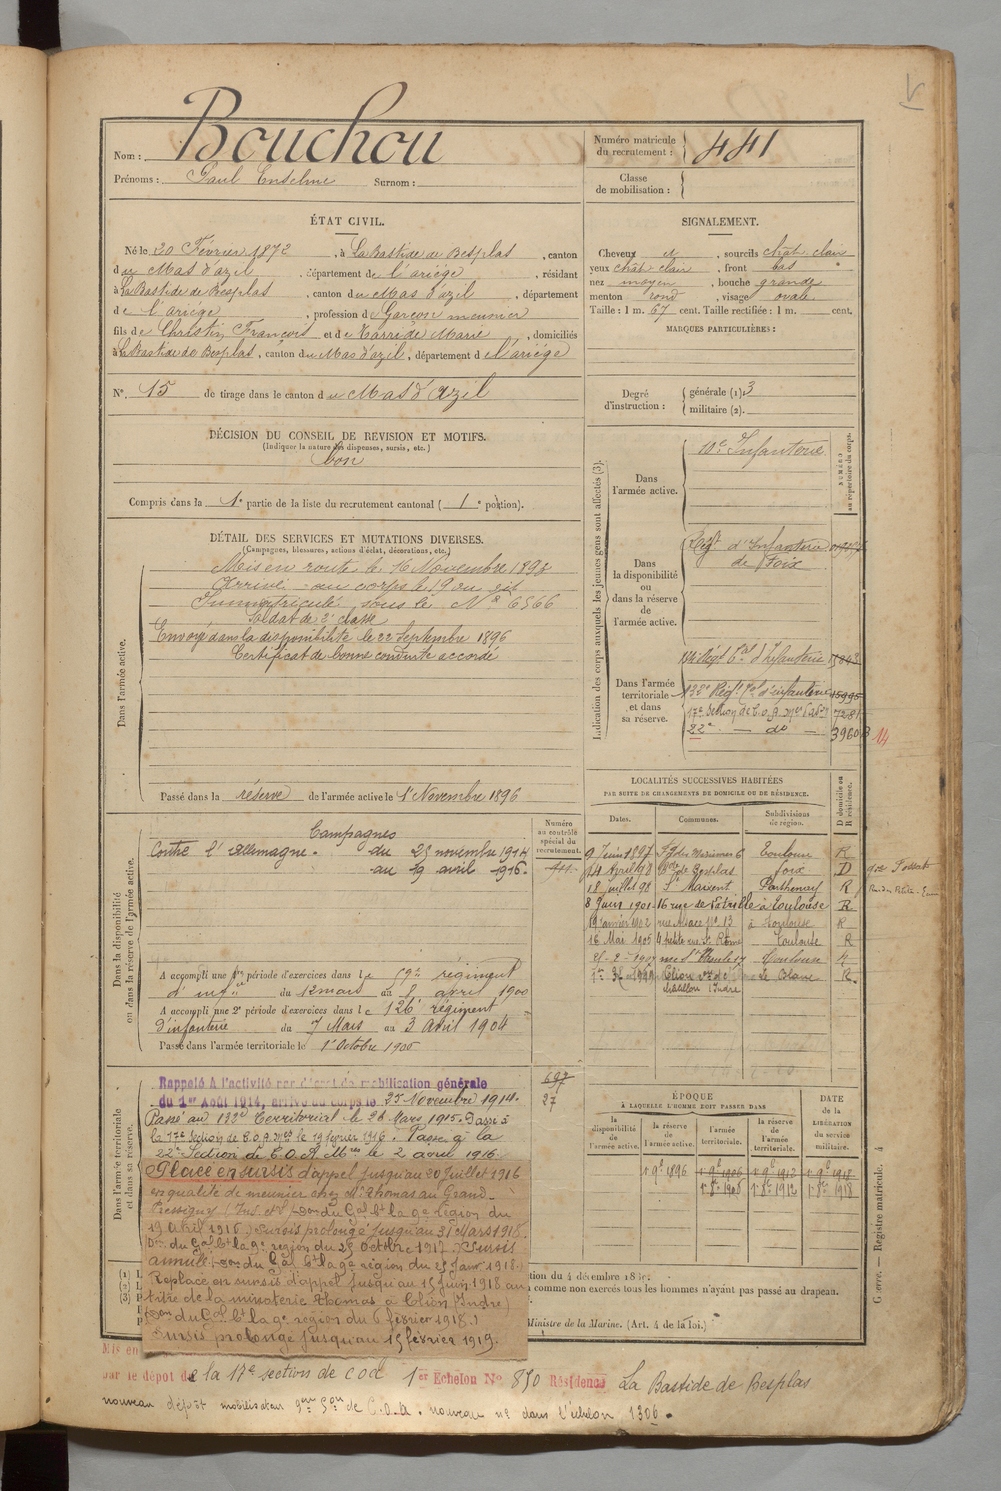 Nom : Bouchou
Prénoms : Paul Enselme Surnom :
Numéro matricule du recrutement : 441
Classe de mobilisation :
ÉTAT CIVIL.
Né le 20 Février 1872, à La Bastide de Besplas, canton
du Mas d'azil, département de l'ariége, résidant
à La Bastide de Besplas, canton du Mas d'azil, département
de l'ariége, profession de Garçon meunier
fils de Christin, François et de Carrière Marie, domiciliés
à La Bastide de Besplas, canton du Mas d'azil, département de l'ariége
N° 15 de tirage dans le canton du Mas d'azil
SIGNALEMENT.
Cheveux N, sourcils chât. clair
yeux chât. clair, front bas
nez moyen, bouche grande
menton rond, visage ovale
Taille : 1 m. 67 cent. Taille rectifiée : 1 m. cent.
MARQUES PARTICULIÈRES :
Degré d'instruction : générale (1). 3
militaire (2).
DÉCISION DU CONSEIL DE REVISION ET MOTIFS.
(Indiquer la nature des dispenses, sursis, etc.)
bon
Compris dans la 1e partie de la liste du recrutement cantonal ( 1e portion).
DÉTAIL DES SERVICES ET MUTATIONS DIVERSES.
(Campagnes, blessures, actions d'éclat, décorations, etc.)
Dans l'armée active.
Mis en route le 16 Novembre 1893
Arrivé au corps le 19 du dit
Immatriculé sous le N° 6566
Soldat de 2e classe
Envoyé dans la disponibilité le 22 Septembre 1896
Certificat de bonne conduite accordé
Passé dans la réserve de l'armée active le 1er Novembre 1896
Indication des corps auxquels les jeunes gens sont affectés (3).
NUMÉRO au répertoire du corps.
Dans l'armée active.
10e Infanterie
Dans la disponibilité ou dans la réserve de l'armée active.
Regt d'Infanterie
de Foix
Dans l'armée territoriale et dans sa réserve.
134 Regt Tal d'Infanterie 15843
133e Regt Tal d'infanterie 15995
17e Section de C.O.A. 7281
22e — do — 3960 14
Dans la disponibilité ou dans la réserve de l'armée active.
Numéro au contrôle spécial du recrutement.
441
Campagnes
Contre l'Allemagne. du 25 novembre 1914
au 19 avril 1916.
A accompli une 1re période d'exercices dans le 59e régiment
d'infie du 12 mars au 8 avril 1900
A accompli une 2e période d'exercices dans le 126e régiment
d'infanterie du 7 Mars au 3 Avril 1904
Passé dans l'armée territoriale le 1er Octobre 1906
LOCALITÉS SUCCESSIVES HABITÉES
PAR SUITE DE CHANGEMENTS DE DOMICILE OU DE RÉSIDENCE.
Dates. Communes. Subdivisions de région. D domicile ou R résidence.
9 Juin 1897 Toulon R
14 April 98 Bde de Besplas foix D
18 juillet 98 St Maixent Parthenay R
8 Juin 1901 16 rue de à Toulouse R
19 janvier 1902 rue Alsace N° 13 à Toulouse R
16 Mai 1905 4 petite rue St Rome Toulouse R
Toulouse
Clion Le Blanc R.
châtillon Indre
Dans l'armée territoriale et dans sa réserve.
697
27
Rappelé à l'activité par décret de mobilisation générale
du 1er Août 1914, arrivé au corps le 25 Novembre 1914.
Passé au 133e Territorial le 26 Mars 1915. Passé à
la 17e Section de C.O.A. le 19 février 1916. Passé à la
22e Section de C.O.A. le 2 avril 1916
Placé en sursis d'appel jusqu'au 20 Juillet 1916
en qualité de meunier chez Mr Thomas au Grand-
Pressigny
du Gal Ct la 9e région du
19 Avril 1916.) Sursis prolongé jusqu'au 31 Mars 1918.
Don du Gal Ct la 9e région du 25 Octobre 1917. Sursis
annulé (Don du Gal Ct la 9e région du 25 Janr 1918.)
Replacé en sursis d'appel jusqu'au 15 Juin 1918 au
titre de la minoterie Thomas à Clion (Indre)
(Don du Gal Ct la 9e région du 6 février 1918.)
Sursis prolongé jusqu'au 15 février 1919.
ÉPOQUE
À LAQUELLE L'HOMME DOIT PASSER DANS
la disponibilité de l'armée active. la réserve de l'armée active. l'armée territoriale. la réserve de l'armée territoriale. DATE de la LIBÉRATION du service militaire.
1r 9e 1896 1r 9e 1906 1r 9e 1912 1r 9e 1918
1r 8re 1906 1r 8re 1912 1r 8re 1918
(1)
(2)
(3)
comme non exercés tous les hommes n'ayant pas passé au drapeau.
Ministre de la Marine. (Art. 4 de la loi.)
Guerre. — Registre matricule. 4
Mis en
par le dépôt de la 17e section de COA 1er Echelon N° 850 Résidence La Bastide de Besplas
nouveau dépôt mobilisateur Son de C.O.A. nouveau n° dans l'échelon 1306.